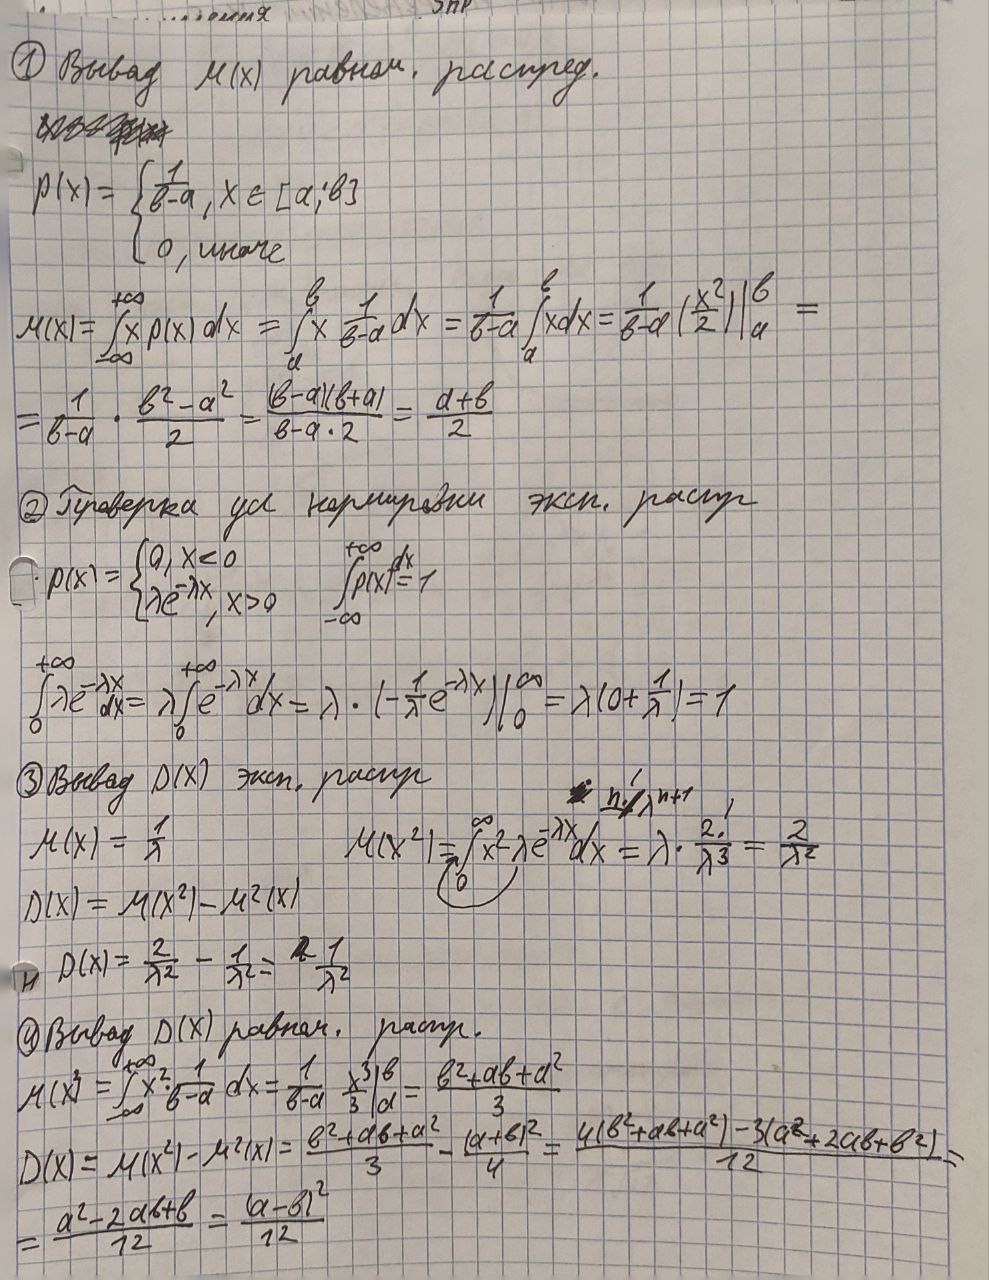 ① Вывод M(x) равном. распред.
p(x) = { 1/(b-a), x ∈ [a; b]
0, иначе
M(x) = ∫_{-∞}^{+∞} x p(x) dx = ∫_a^b x 1/(b-a) dx = 1/(b-a) ∫_a^b x dx = 1/(b-a) (x²/2) |_a^b =
= 1/(b-a) · (b² - a²)/2 = (b-a)(b+a)/(b-a · 2) = (a+b)/2
② Проверка усл нормировки эксп. распр
p(x) = { 0, x < 0
λe^{-λx}, x > 0
∫_{-∞}^{+∞} p(x) dx = 1
∫_0^{+∞} λe^{-λx} dx = λ ∫_0^{+∞} e^{-λx} dx = λ · (-1/λ e^{-λx}) |_0^∞ = λ(0 + 1/λ) = 1
③ Вывод D(x) эксп. распр
n! / λ^{n+1}
M(x) = 1/λ
M(x²) = ∫_0^∞ x² λe^{-λx} dx = λ · 2!/λ³ = 2/λ²
D(x) = M(x²) - M²(x)
D(x) = 2/λ² - 1/λ² = 1/λ²
④ Вывод D(x) равном. распр.
M(x²) = ∫_{-∞}^{+∞} x² · 1/(b-a) dx = 1/(b-a) x³/3 |_a^b = (b² + ab + a²)/3
D(x) = M(x²) - M²(x) = (b² + ab + a²)/3 - (a+b)²/4 = (4(b² + ab + a²) - 3(a² + 2ab + b²))/12 =
= (a² - 2ab + b)/12 = (a-b)²/12